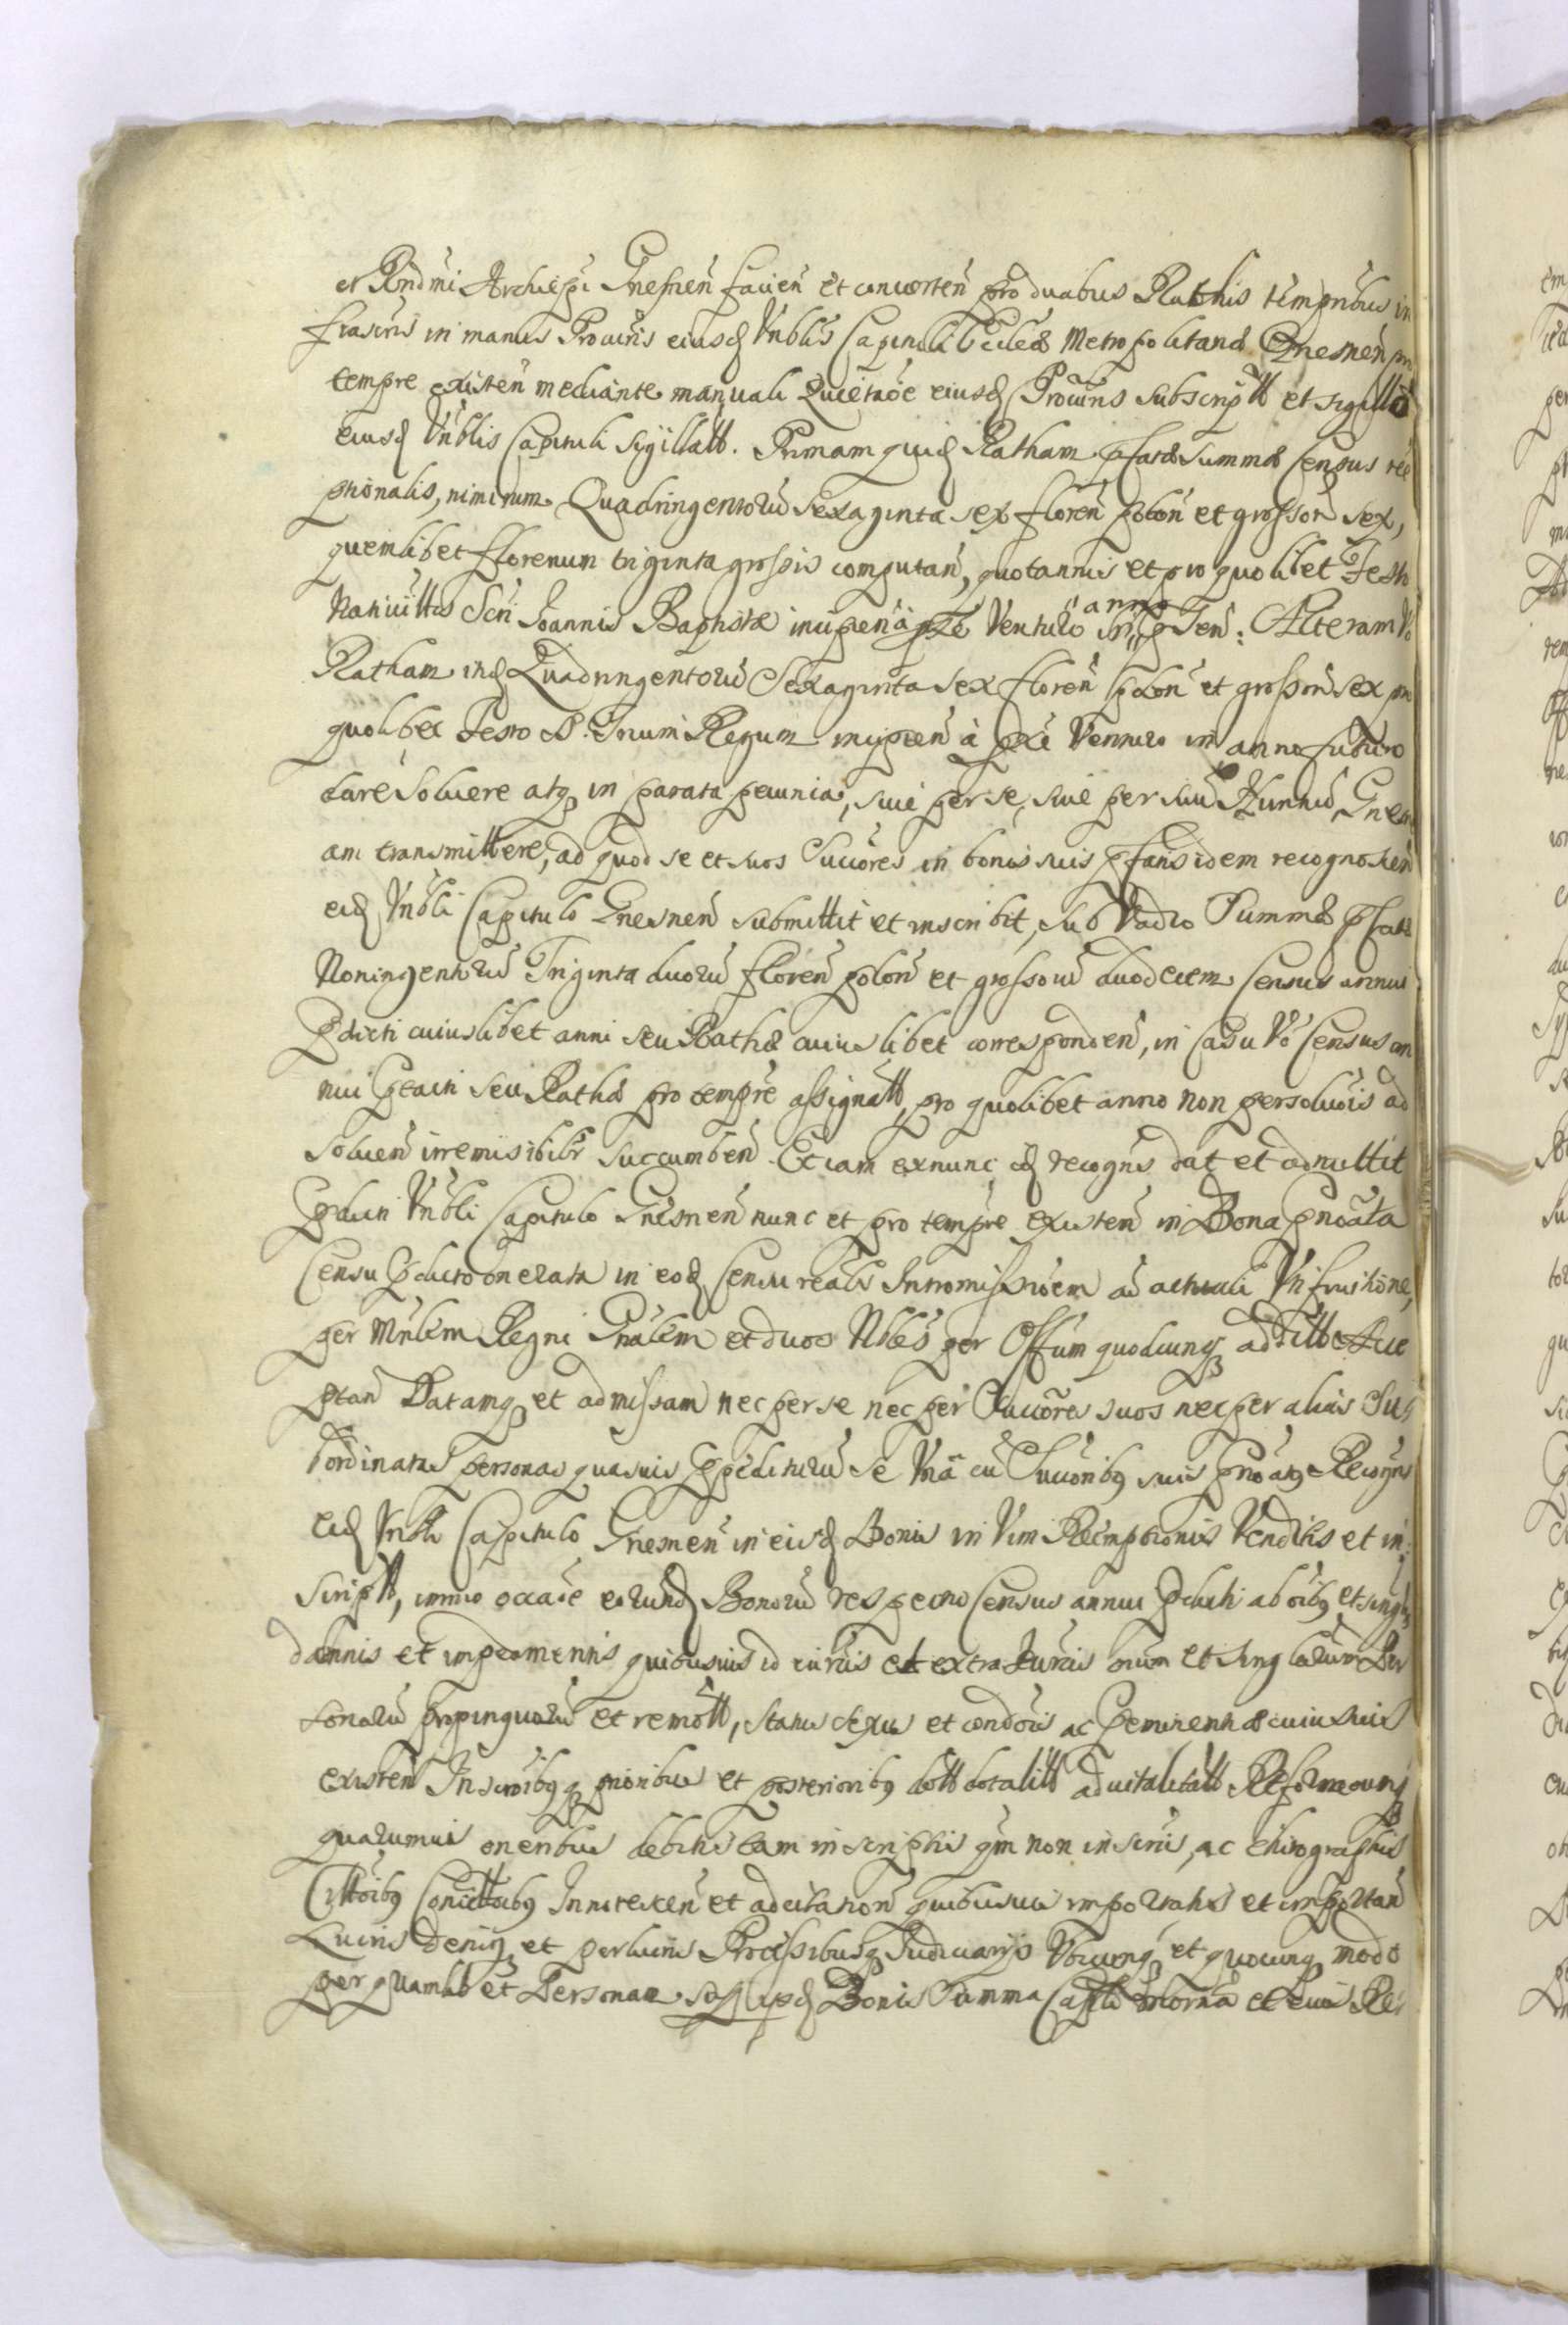 et Rndmi Archiepi Gnesnen facien et convorten pro duabus Rathis tempribus in
frascris in manus Procuris eiusd Vnblis Capituli Eccleae Metropolitanae Gnesnen pro
tempre existen mediante manuali Quietaoe eiusd Procuris subscriptt et sigillo
eiusd Vnblis Capituli sigillatt. Primam quid Ratham pfatae Summae Census ree
ptionalis, nimirum Quadringentoru sexaginta sex floren polon et grossor sex,
quemlibet florenum triginta grossis computan, quotannis et pro quolibet Festo
Nativittis Scti Joannis Baptistae incipien à pte Venturo anno Alteram Vo
Ratham itid Quadringentoru Sexaginta sex floren polon et grossor sex pro
quolibet Festo S. Trium Regum incipien à pte Venturo in anno futuro
dare solvere atq in parata pecunia, sive per se, sive per suu Nunniu Gnesn
am transmittere, ad quod se et suos Succores in bonis suis pfatis idem recognoscen
eid Vnbli Capitulo Gnesnen submittit et inscribit, sub Vadio Summae pfatae
Noningentoru Triginta duoru floren polon et grossoru duodecem Census annui
pdicti cuiuslibet anni seu Rathae cuiuslibet corresponden, in Casu Vo Census an
nui pdicti seu Rathae pro tempre assignatt, pro quolibet anno non persolucis ad
soluen irremisibilr succumben. Et iam exnunc id recognis dat et admittit
pdicti Vnbli Capitulo Gnesnen nunc et pro tempre existen in Bona pnoata
Censu pdicto onerata in eod Censu realis Intromissioem ad actuali Vsifruitione,
per Mnlem Regni Gnalem et duos Nbles per Offum quodcunq additt Acce
ptan Datamq et admissam nec per se nec per Succores suos nec per alias Su
bordinatas personas quasuis Eppediturum se Vna cu Succoribq suis pnoatq Recogns
eid Vnbli Capitulo Gnesnen in eisd Bonis in Vim Reemptionis Venditis et in
scriptt, immo occaoe eorund Bonoru respectu Census annui pdicti ab oibq et singlis
damnis et impedmentis quibusuis id iuris et extra Juris oium et singlarum Per
sonaru propinquaru et remott, status sexus et condois ac peminentae cuiusuis
existen Inscroibq prioribus et posterioribq dott dotalitt aduitalitatt Reformaonuq
quarumuis oneribus debitis tam inscriptis qm non inscris, ac chirographis
Cittoibq Convittoibq Innotescen et adcitation quibusuis importatis et importan
Lucris Deniq et perlucris Processibusq Judiciarijs Vbicunq et quocunq modo
per quamlibet Personam sup ipsd Bonis Summa Capli et eius Re